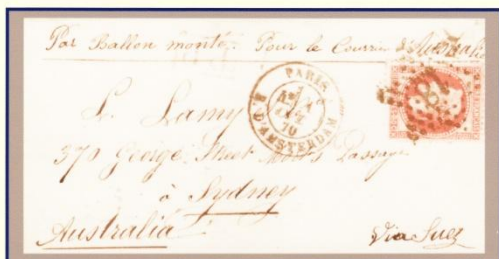 Par Ballon monté. Pour le Courrier d'Australie
PARIS
R. D'AMSTERDAM
70
L. Lamy
370 George Street Passage
à Sydney
Australia
Via Suez